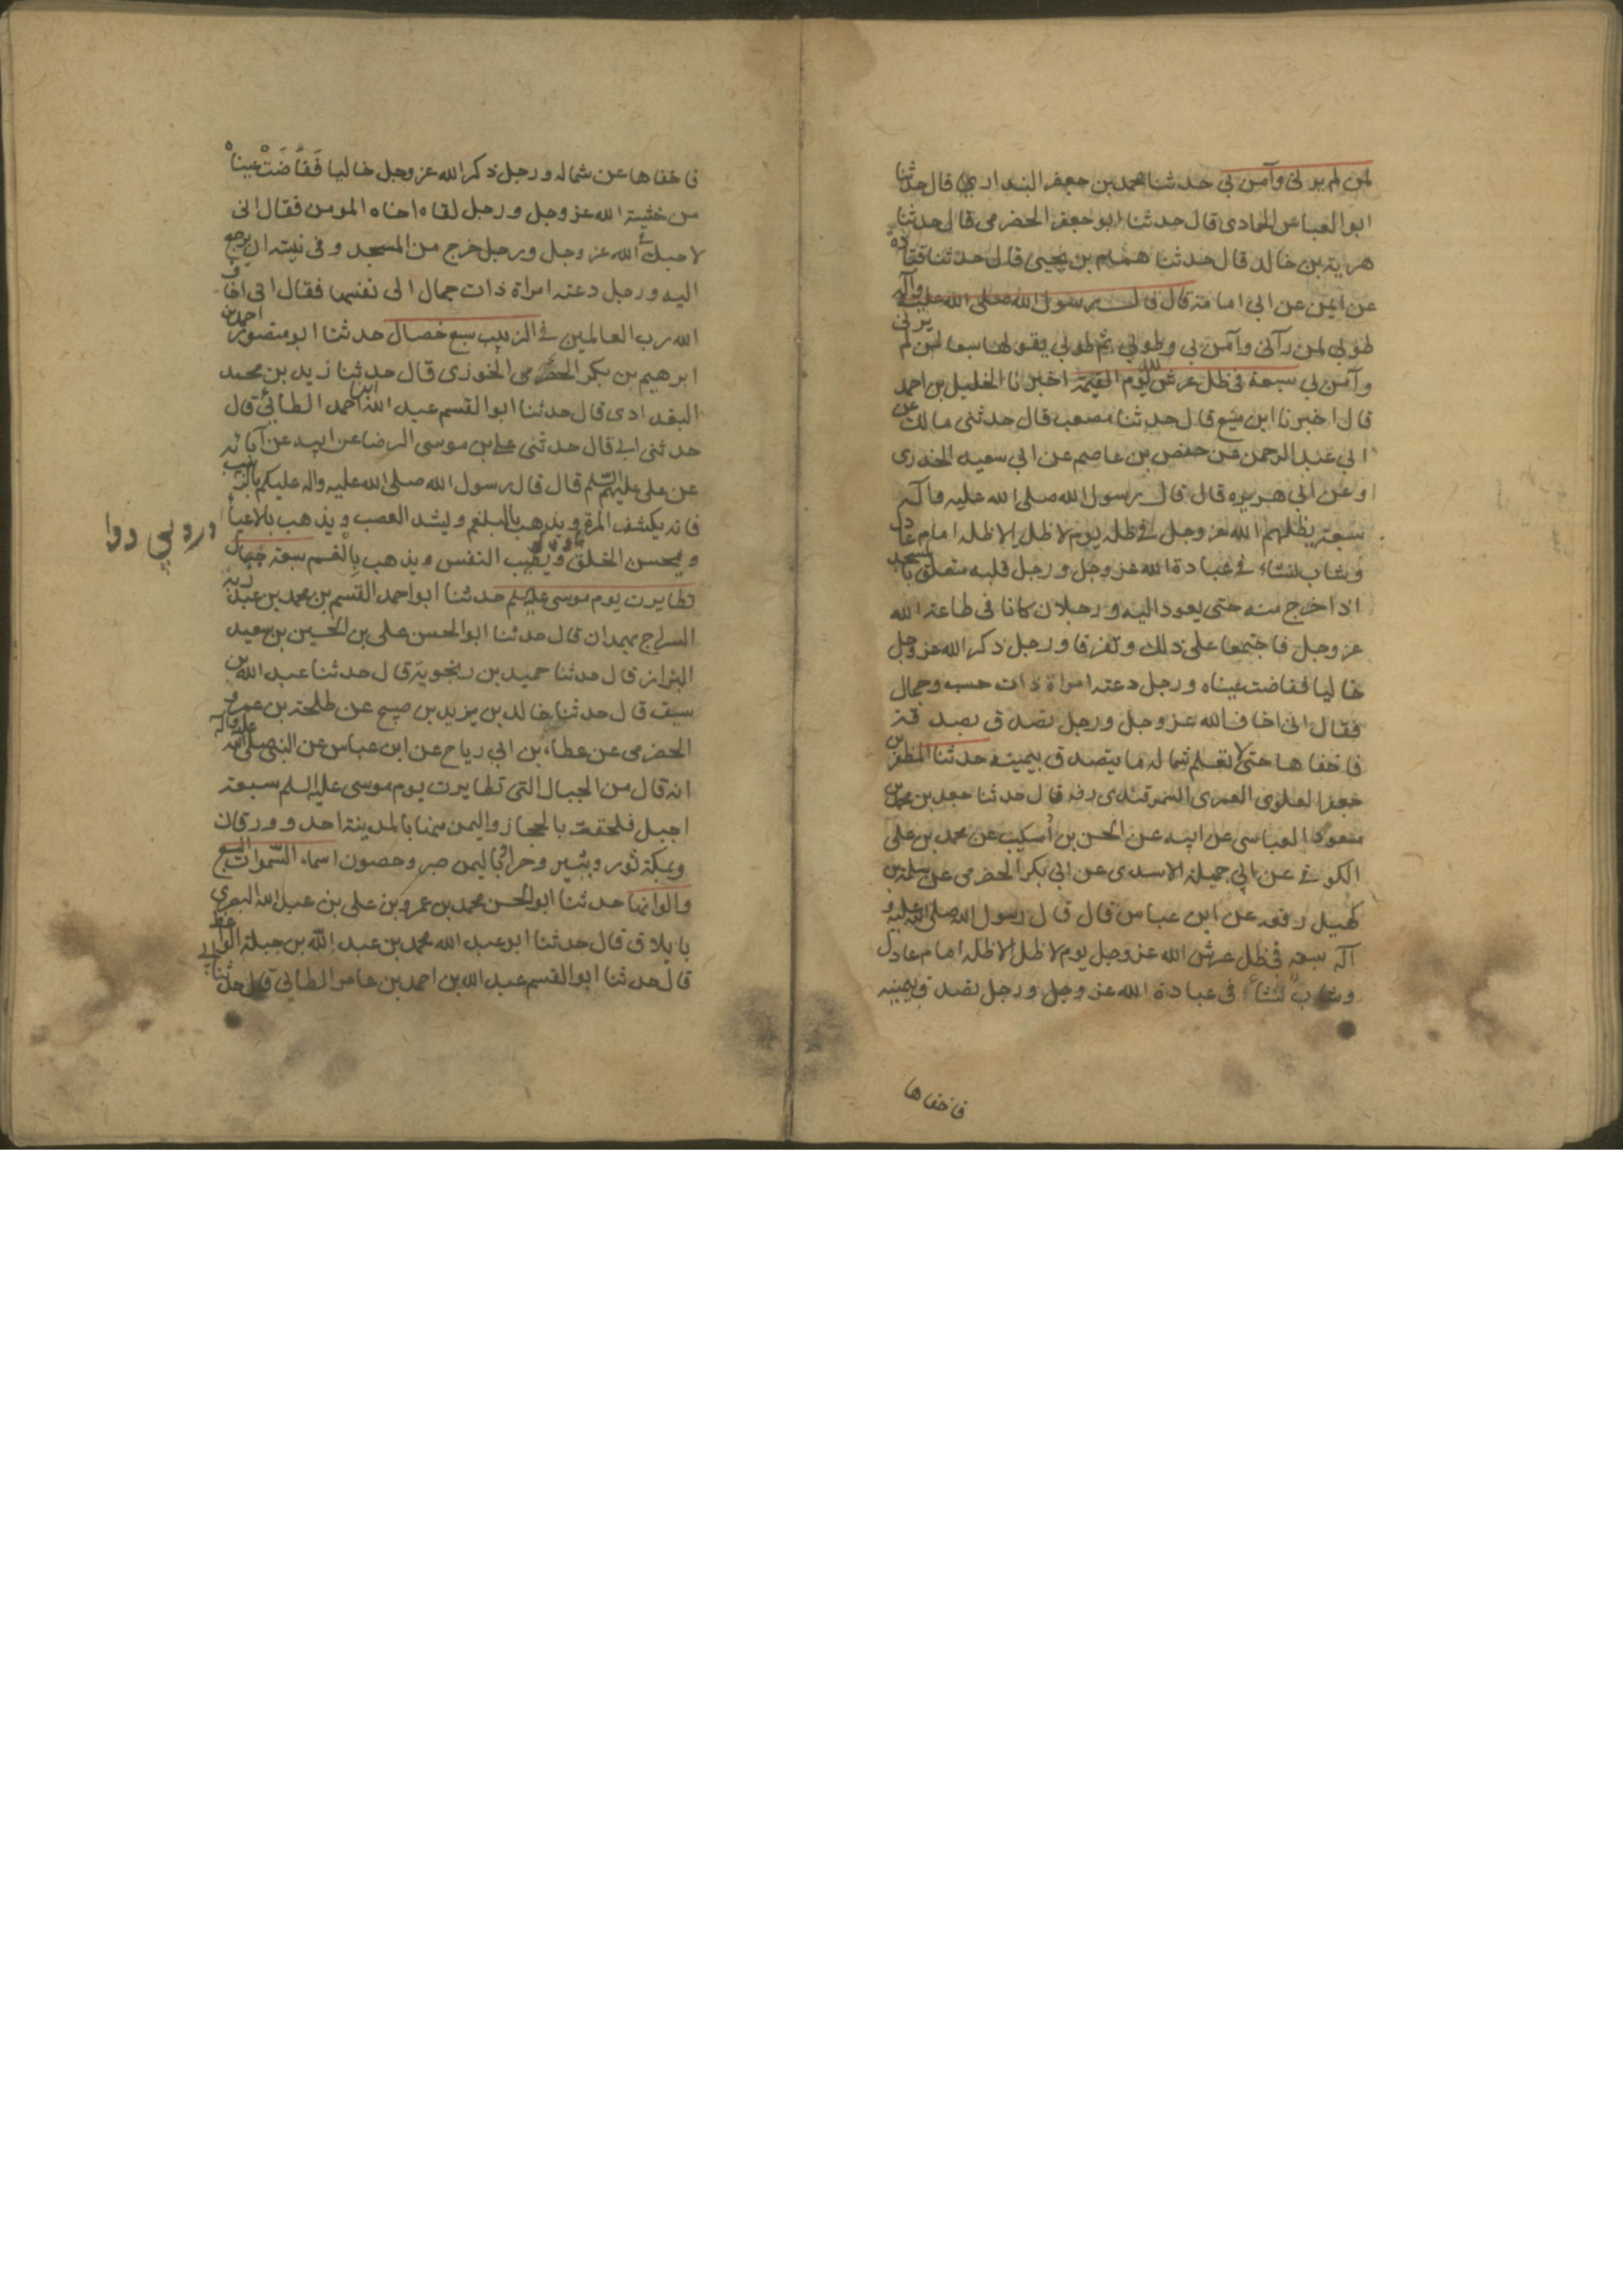 لمن لم يرني وآمن بي حدثنا محمد بن جعفر البنداري قال حدثنا
ابو العباس الحمادي قال حدثنا ابو جعفر الحضرمي قال حدثنا
هدبة بن خالد قال حدثنا همام بن يحيى قال حدثنا قتادة
عن ايمن عن ابي امامة قال قال رسول الله صلى الله عليه وآله
طوبى لمن رآني وآمن بي وطوبى ثم طوبى يقولها سبعا لمن لم يرني
وآمن بي سبعة في ظل عرش الله يوم القيمة اخبرنا الخليل بن احمد
قال اخبرنا ابن منيع قال حدثنا مصعب قال حدثني مالك عن
ابي عبد الرحمن عن حفص بن عاصم عن ابي سعيد الخدري
او عن ابي هريره قال قال رسول الله صلى الله عليه وآله
سبعة يظلهم الله عز وجل في ظله يوم لا ظل الا ظله امام عادل
وشاب نشاء في عبادة الله عز وجل ورجل قلبه متعلق بالمسجد
اذا خرج منه حتى يعود اليه ورجلان كانا في طاعة الله
عز وجل فاجتمعا على ذلك وتفرقا ورجل ذكر الله عز وجل
خاليا ففاضت عيناه ورجل دعته امراة ذات حسب وجمال
فقال اني اخاف الله عز وجل ورجل تصدق بصدقة
فاخفاها حتى لا تعلم شماله ما يتصدق بيمينه حدثنا المظفر بن
جعفر العلوي العمري السمرقندي رضه قال حدثنا جعفر بن محمد بن
مسعود العياشي عن ابيه عن الحسن بن اسكيب عن محمد بن علي
الكوفي عن ابي جميلة الاسدي عن ابي بكر الحضرمي عن سلمة بن
كهيل رفعه عن ابن عباس قال قال رسول الله صلى الله عليه و
آله سبعة في ظل عرش الله عز وجل يوم لا ظل الا ظله امام عادل
وشاب نشأ في عبادة الله عز وجل ورجل تصدق بيمينه
فاخفاها
فاخفاها عن شماله ورجل ذكر الله عز وجل خاليا فَفَاضَتْ عيناه
من خشية الله عز وجل ورجل لقاه اخاه المومن فقال اني
لاحبك في الله عز وجل ورجل خرج من المسجد وفي نيته ان يرجع
اليه ورجل دعته امراة ذات جمال الى نفسها فقال اني اخاف
الله رب العالمين في الزبيب سبع خصال حدثنا ابو منصور احمد بن
ابرهيم بن بكر الخوزي قال حدثنا زيد بن محمد
البغدادي قال حدثنا ابو القسم عبد الله ابن احمد الطائي قال
حدثني ابي قال حدثني علي بن موسى الرضا عن ابيه عن آبائه
عن علي عليهم السلم قال قال رسول الله صلى الله عليه واله عليكم بالزبيب
فانه يكشف المرة ويذهب بالبلغم ويشد العصب ويذهب بالاعياء
ويحسن الخلق ويطيب النفس ويذهب بالغم سبعة جبال
تطايرت يوم موسى عليه السلم حدثنا ابو احمد القسم بن محمد بن عبدويه
السراج بهمدان قال حدثنا ابو الحسن علي بن الحسين بن سعيد
البزاز قال حدثنا حميد بن زنجوية قال حدثنا عبد الله بن
سيف قال حدثنا خالد بن يزيد بن صبيح عن طلحة بن عمرو
الحضرمي عن عطاء بن ابي رياح عن ابن عباس عن النبي صلى الله عليه وآله
انه قال من الجبال التي تطايرت يوم موسى عليه السلم سبعة
اجبل فلحقت بالحجاز واليمن منها بالمدينة احد وورقان
وبمكة ثور وثبير وحرا وباليمن صبر وحصون اسماء السموات السبع
والوانها حدثنا ابو الحسن محمد بن عمرو بن علي بن عبد الله البصري
بايلاق قال حدثنا ابو عبد الله محمد بن عبد الله بن جبلة الواعظ
قال حدثنا ابو القسم عبد الله بن احمد بن عامر الطائي قال حدثنا ابي